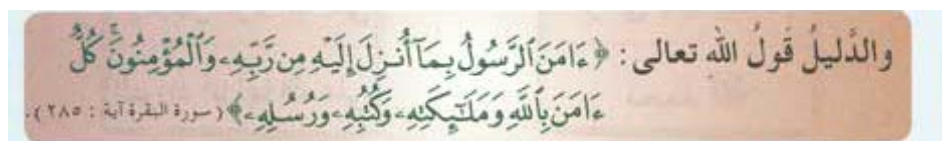 والدَّليلُ قَولُ الله تعالى: ﴿ءَامَنَ ٱلرَّسُولُ بِمَآ أُنزِلَ إِلَيْهِ مِن رَّبِّهِۦ وَٱلْمُؤْمِنُونَۚ كُلٌّ
ءَامَنَ بِٱللَّهِ وَمَلَـٰٓئِكَتِهِۦ وَكُتُبِهِۦ وَرُسُلِهِۦ﴾ (سورة البقرة آية : ٢٨٥).